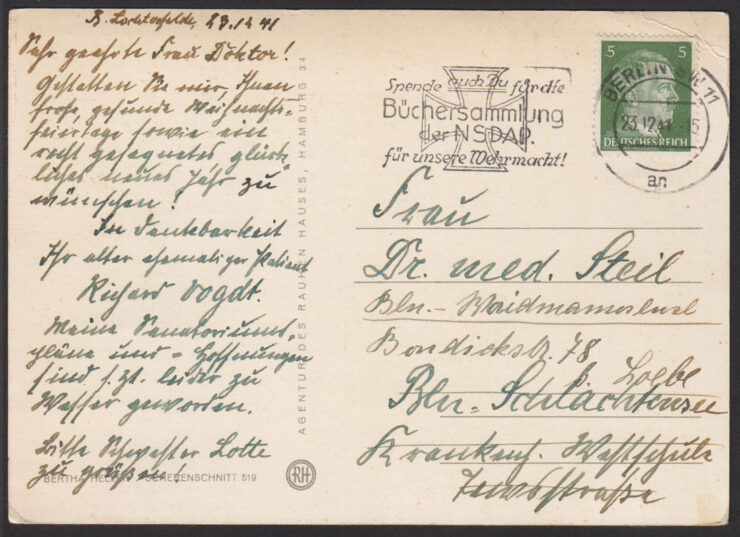 B. Lichterfelde, 23.12.41
Sehr geehrte Frau Doktor!
Gestatten Sie mir, Ihnen
frohe, gesunde Weihnachts-
feiertage sowie ein
recht gesegnetes, glück-
liches neues Jahr zu
wünschen!
In Dankbarkeit
Ihr alter ehemaliger Patient
Richard Vogdt.
Meine Sanatoriums-
pläne und -Hoffnungen
sind s. Zt. leider zu
Wasser geworden.
Bitte Schwester Lotte
zu grüßen!
BERTHA SCHERENSCHNITT 519
RH
AGENTUR DES RAUHEN HAUSES, HAMBURG 34
Spende auch Du für die
Büchersammlung
der NSDAP.
für unsere Wehrmacht!
5 5
DEUTSCHES REICH
BERLIN SW 11
23.12.41
an
Frau
Dr. med. Steil
Bln.-Waidmannslust
Bondickstr. 78
b. Loebe
Bln-Schlachtensee
Krankenh. Westschule